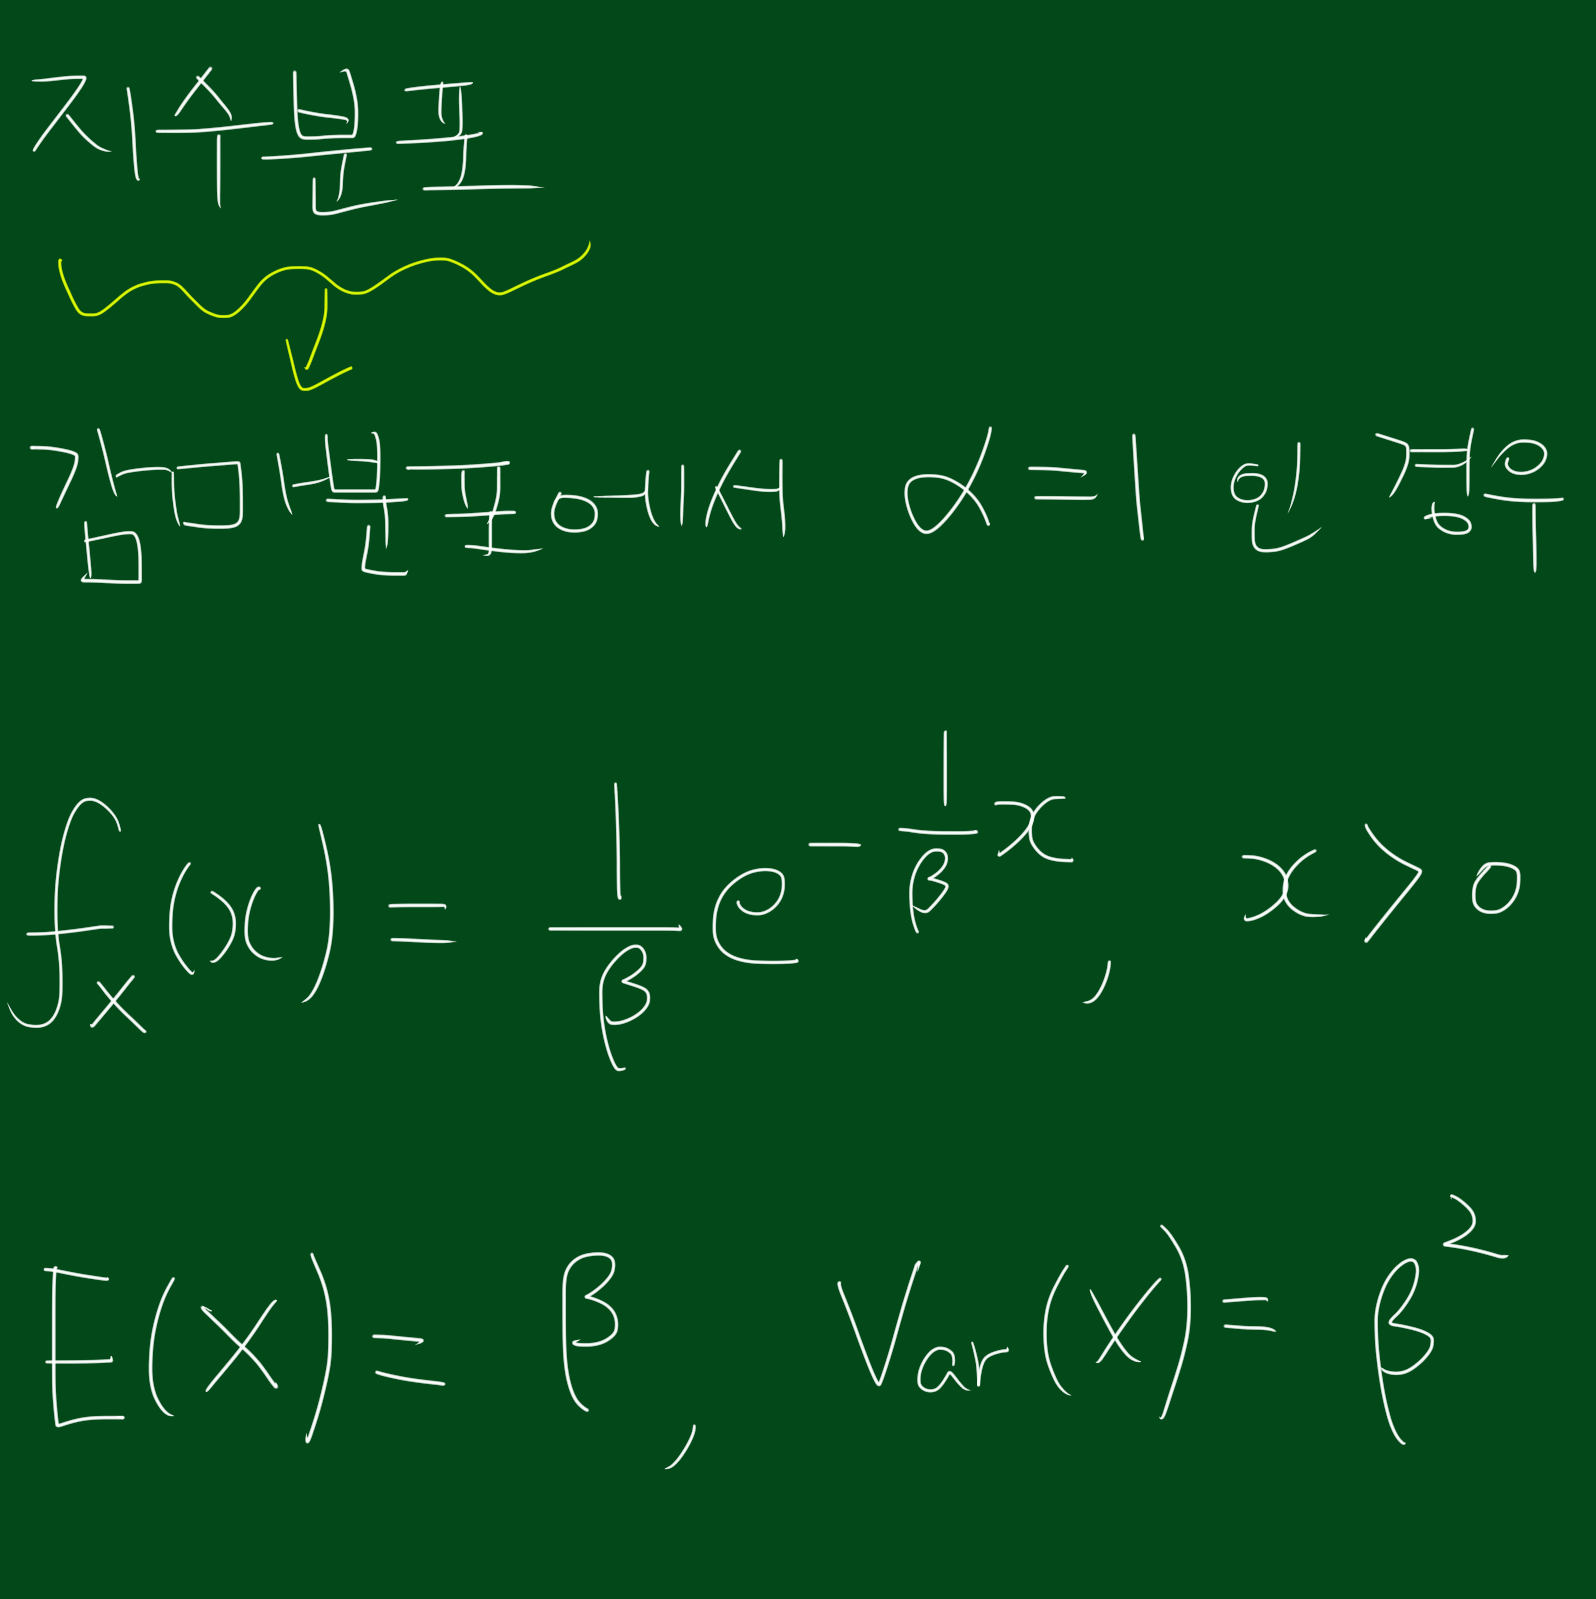 지수분포
감마분포에서 α=1 인 경우
f_X(x) = \frac{1}{β} e^{-\frac{1}{β}x}, x > 0
E(X) = β, Var(X) = β^2